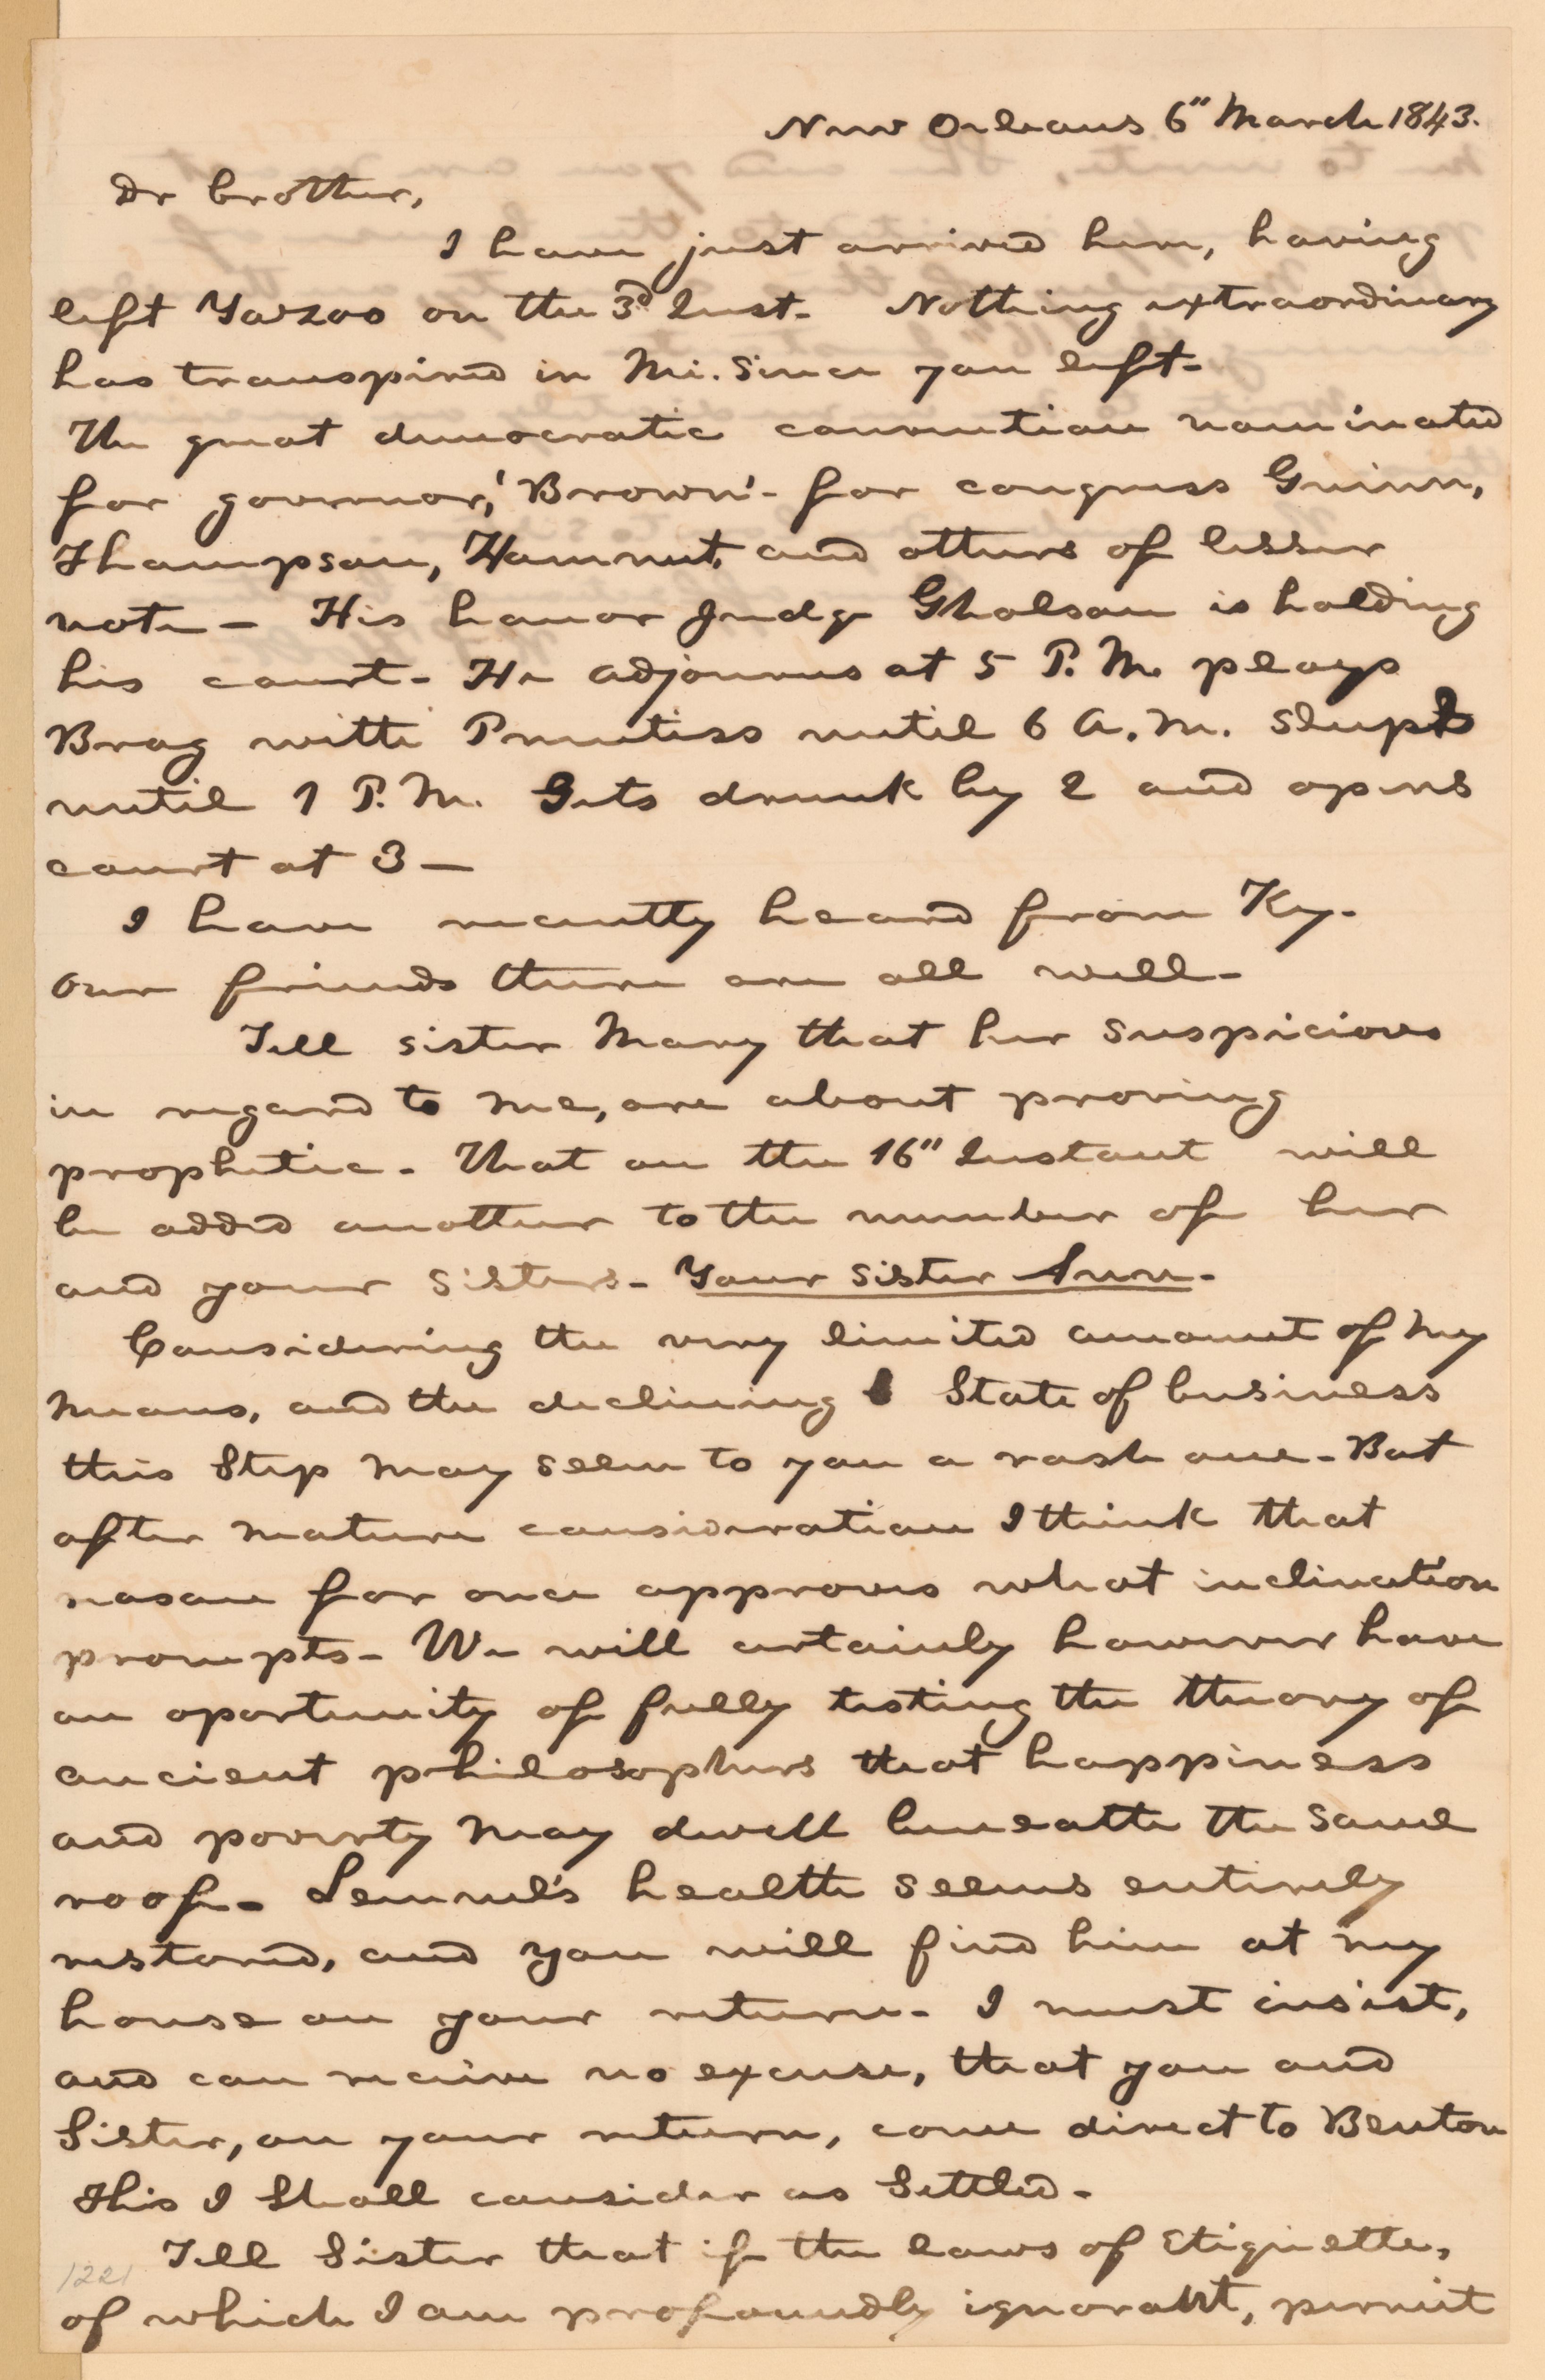 New Orleans 6" March 1843.
Dr brother,
I have just arrived here, having
left Yazoo on the 3d Inst. Nothing extraordinary
has transpired in Mi. Since you left-
The great democratic convention nominated
for governor, 'Brown'- for congress Guinn,
Thompson, Hammet, and others of lesser
note - His honor Judge Gholson is holding
his court - He adjourns at 5 P.M. plays
Brag with Prentiss until 6 A.M. Sleeps
until 1 P.M. Gets drunk by 2 and opens
court at 3 -
I have recently heard from Ky.
Our friends there are all well-
Tell sister Mary that her suspicions
in regard to me, are about proving
prophetic - That on the 16" Instant will
be added another to the number of her
and your sisters - Your sister Ann -
Considering the very limited amount of my
means, and the declining State of business
this Step may seem to you a rash one - But
after mature consideration I think that
reason for once approves what inclination
prompts - We will certainly however have
an oportunity of fully testing the theory of
ancient philosophers that happiness
and poverty may dwell beneath the same
roof - Lemuel's health seems entirely
restored, and you will find him at my
house on your return - I must insist,
and can receive no excuse, that you and
Sister, on your return, come direct to Benton
This I Shall consider as Settled -
Tell Sister that if the laws of Etiquette,
1221
of which I am profoundly ignorant, permit